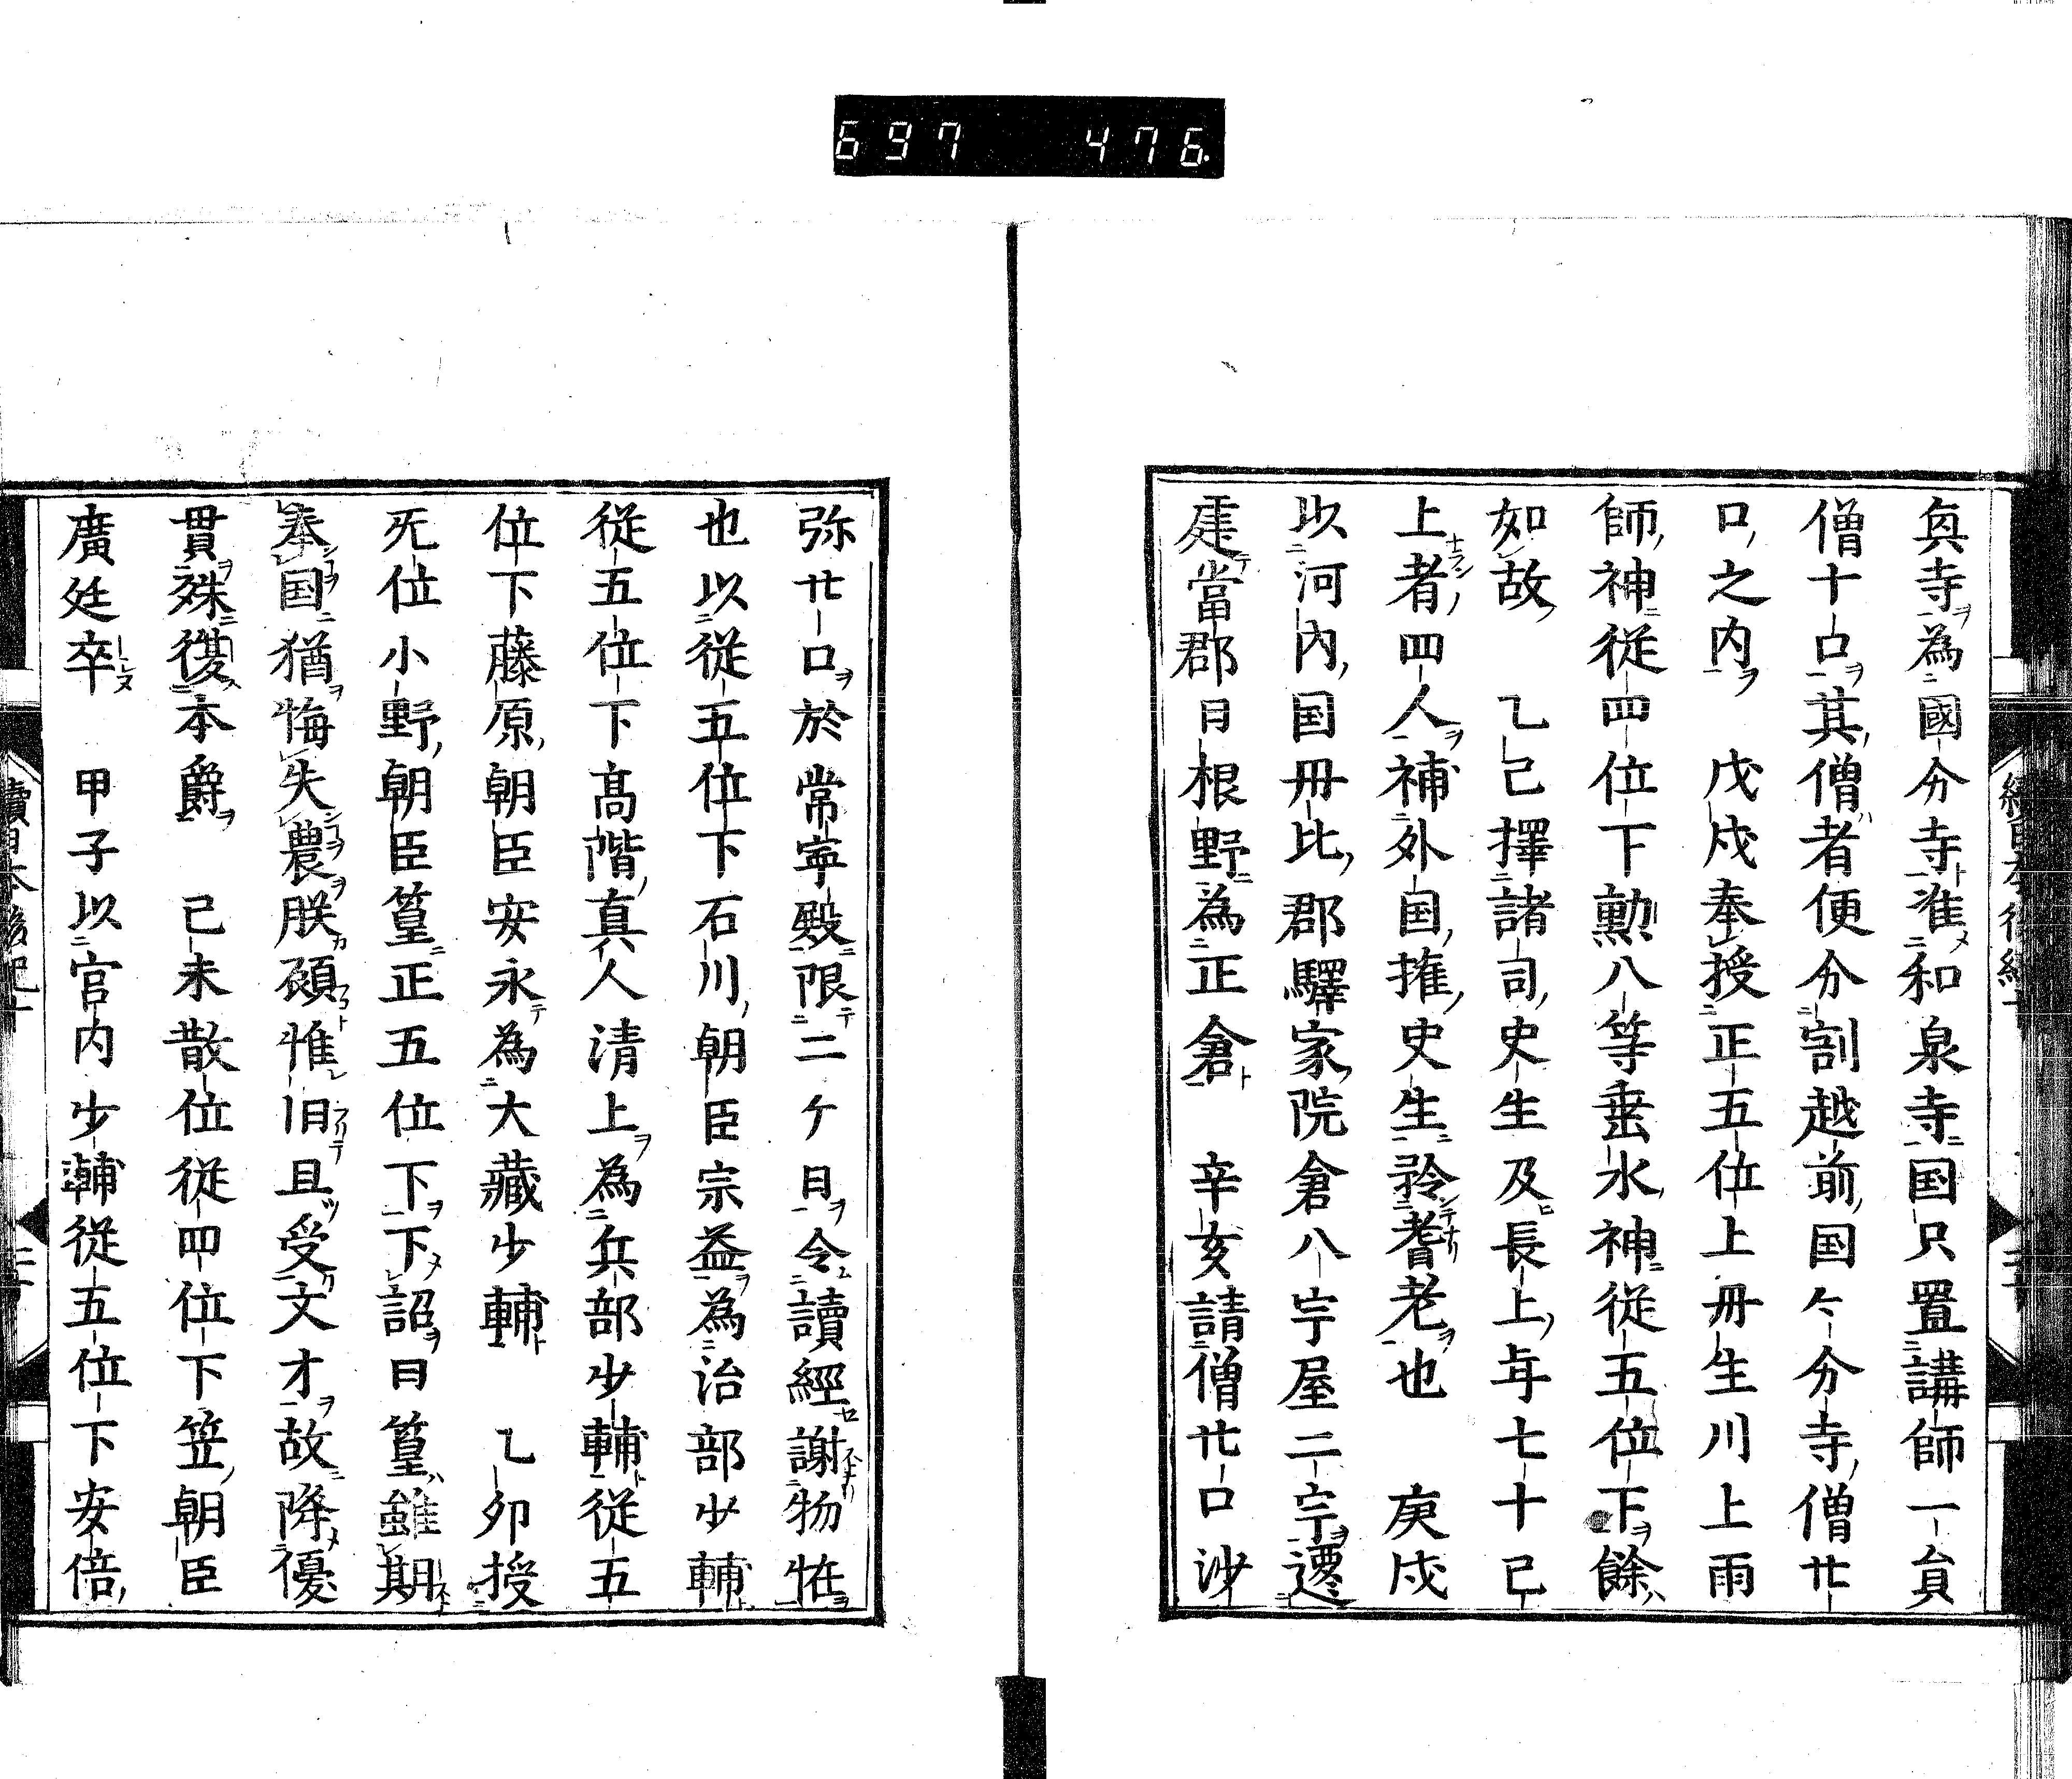 697 476.
寺為國分寺准和泉寺国只置講師一貟
僧十口其僧者便分割越前国々分寺僧廿
口之内　戊戌奉授正五位上丹生川上雨
師神従四位下勲八等垂水神従五位下餘
如故　乙巳擇諸司史生及長上年七十已
上者四人補外国権史生矜耆老也　庚戌
以河内国丹比郡驛家院倉八宇屋二宇遷
建當郡日根野為正倉　辛亥請僧廿口沙
弥廿口於常寧殿限二ケ日令讀經謝物恠
也以従五位下石川朝臣宗益為治部少輔
従五位下髙階真人清上為兵部少輔従五
位下藤原朝臣安永為大藏少輔　乙卯授
无位小野朝臣篁正五位下下詔曰篁雖期
奉国猶悔失農朕顧惟旧且受文才故降優
貫殊復本爵　己未散位従四位下笠朝臣
廣廷卒　甲子以宮内少輔従五位下安倍